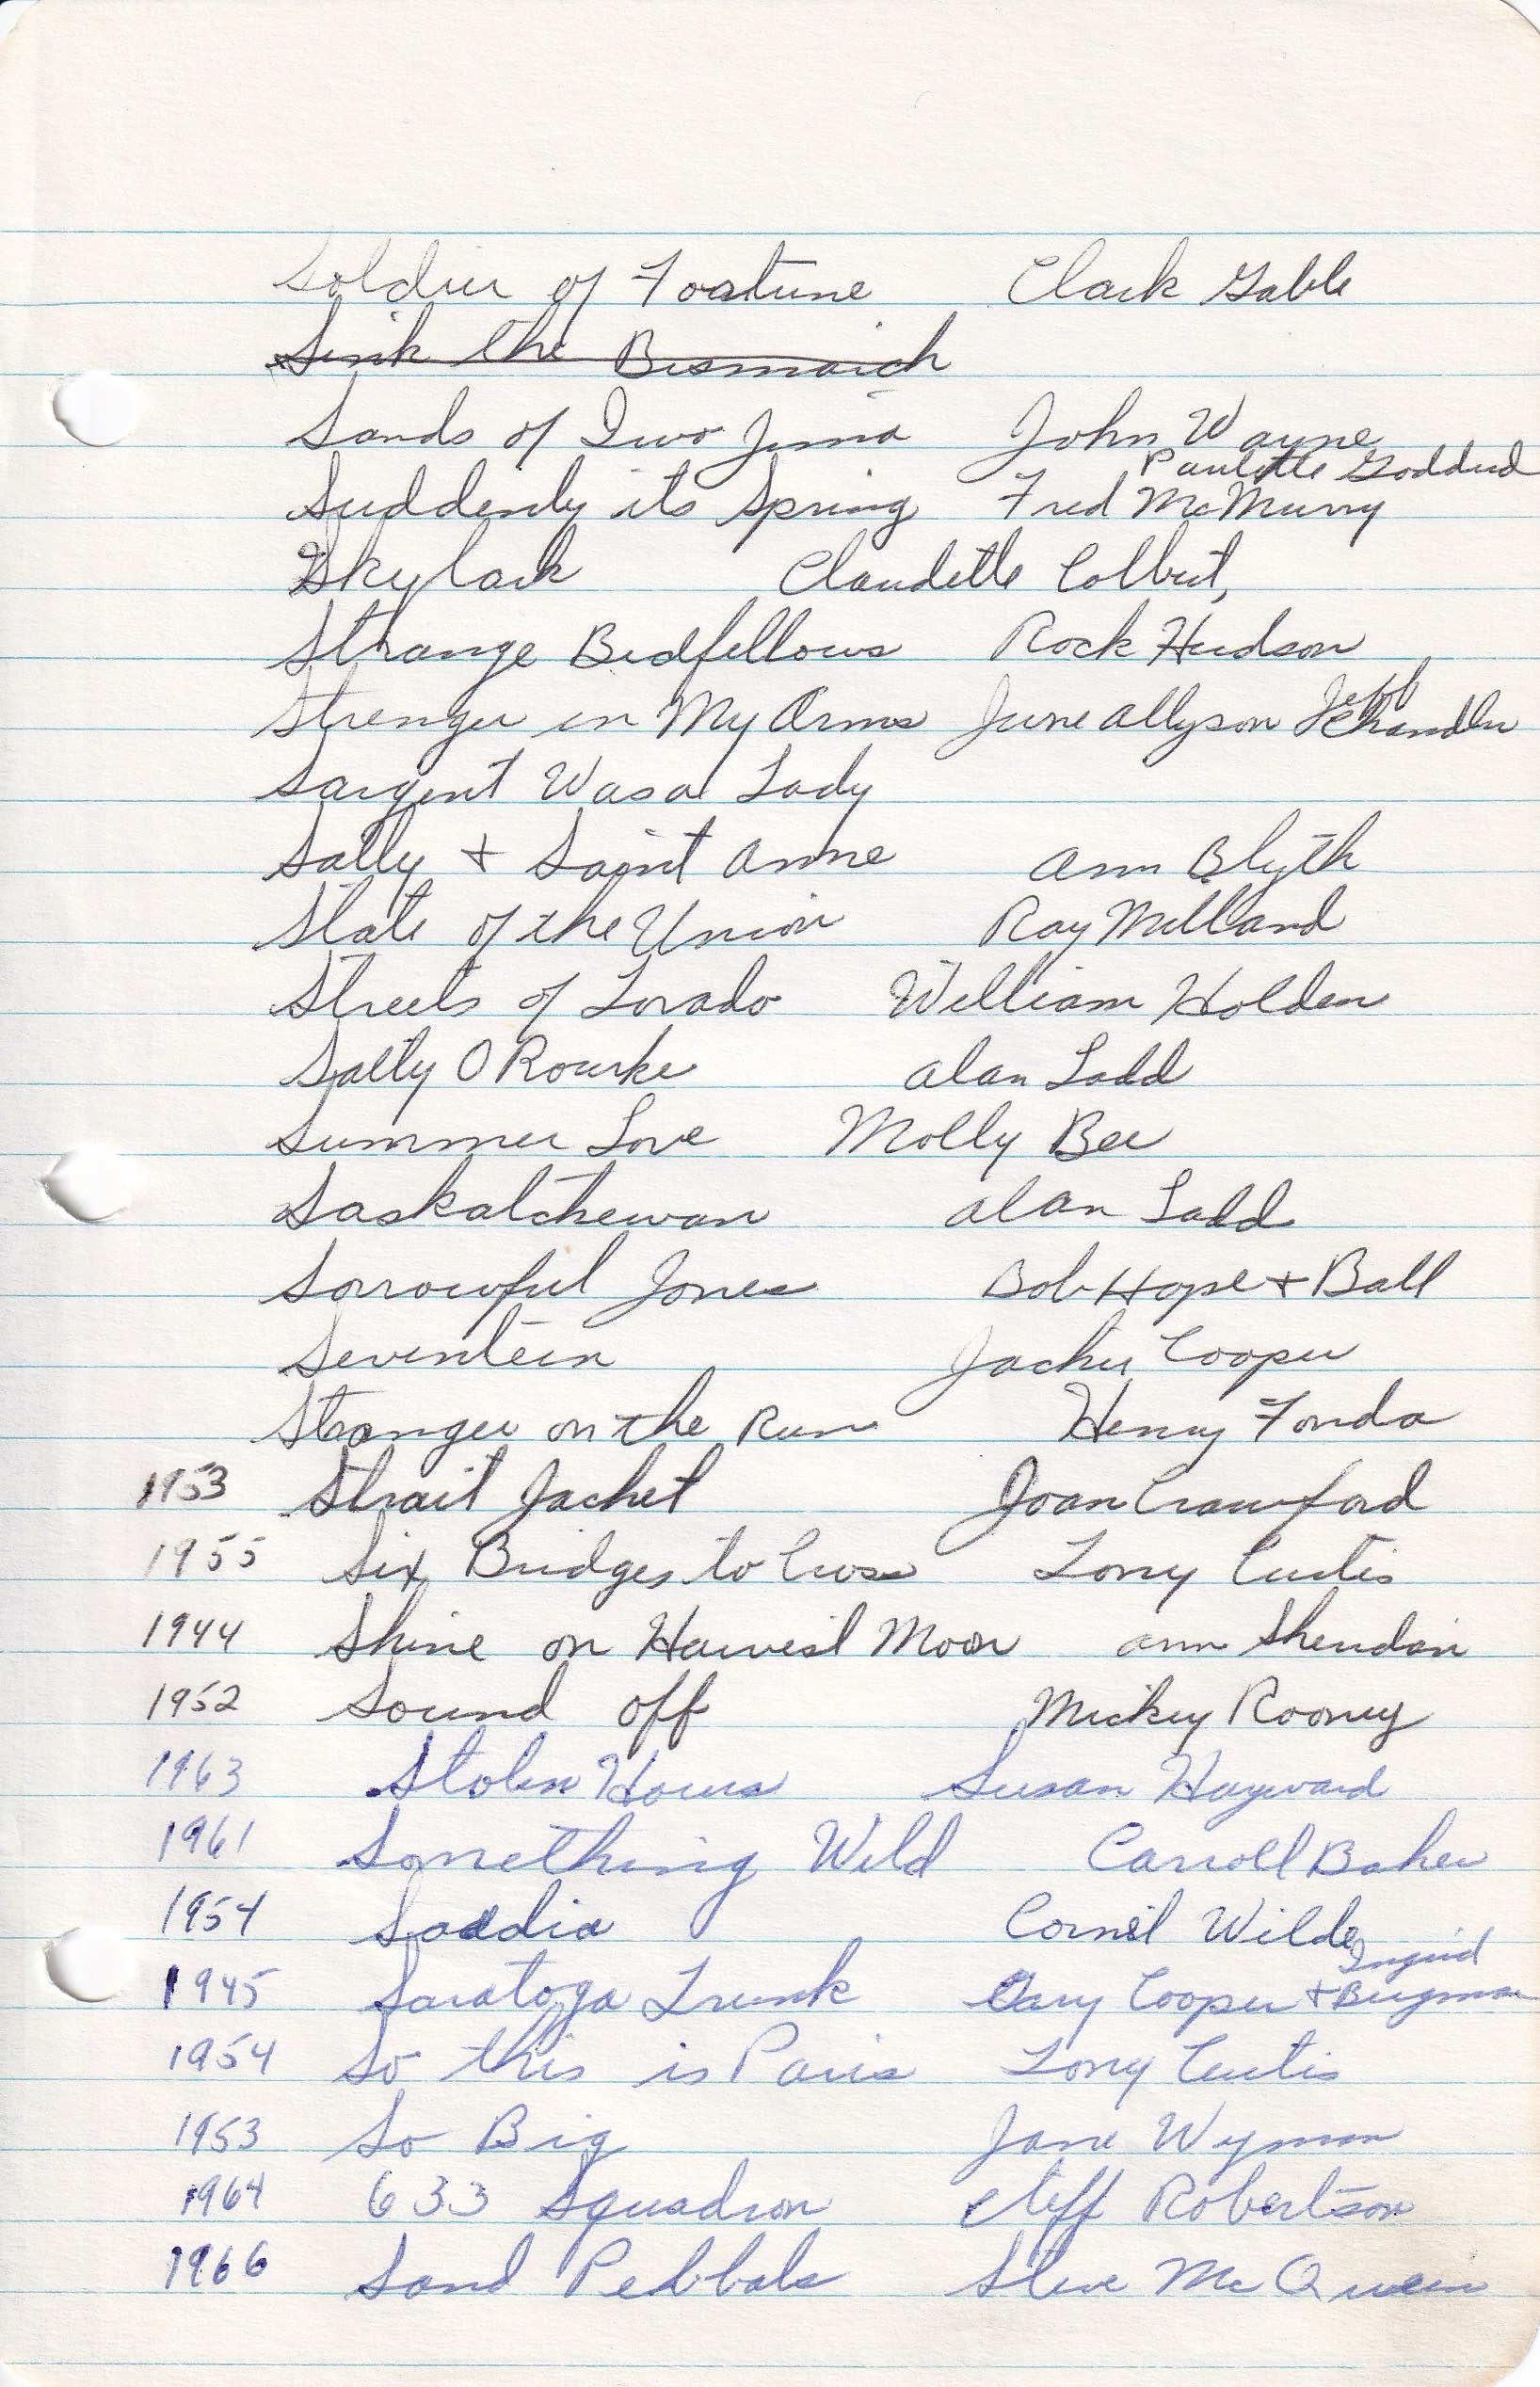 Soldier of Fortune Clark Gable
Sink the Bismarck
Sands of Iwo Jima John Wayne
Paulette Goddard
Suddenly its Spring Fred McMurry
Skylark Claudette Colbert,
Strange Bedfellows Rock Hudson
Stranger in My Arms June Allyson Jeff Chandler
Sargent Was a Lady
Sally + Saint Anne Ann Blyth
State of the Union Ray Milland
Streets of Lorado William Holden
Salty O Rourke Alan Ladd
Summer Love Molly Bee
Saskatchewan Alan Ladd
Sorrowful Jones Bob Hope + Ball
Seventeen Jackie Cooper
Stranger on the Run Henry Fonda
1953 Strait Jacket Joan Crawford
1955 Six Bridges to Cross Tony Curtis
1944 Shine on Harvest Moon Ann Sheridan
1952 Sound off Mickey Rooney
1963 Stolen Hours Susan Hayward
1961 Something Wild Carroll Baker
1954 Saadia Cornel Wilde
1945 Saratoga Trunk Gary Cooper + Ingrid Bergman
1954 So this is Paris Tony Curtis
1953 So Big Jane Wyman
1964 633 Squadron Cliff Robertson
1966 Sand Pebbals Steve McQueen